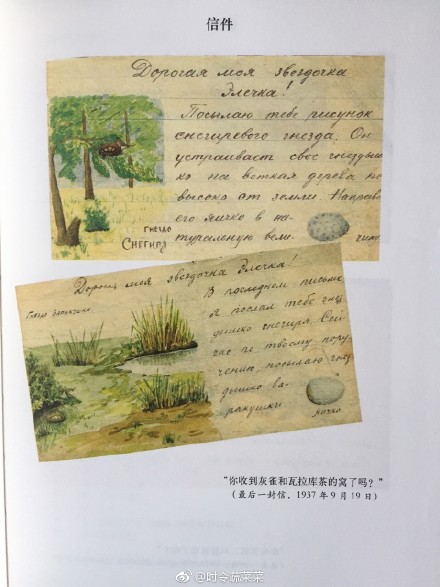 信件
Дорогая моя звездочка
Элечка!
Посылаю тебе рисунок
снегиревого гнезда. Он
устраивает свое гнездыш
ко на ветках дерева не
высоко от земли. Направо
его яичко в на-
туральную вели- чину.
гнездо
Снегиря
Дорогая моя звездочка Элечка!
Гнездо варакушки
В последнем письме
я послал тебе гнез
дышко снегиря. Сей
час по твоему пору
чению посылаю гнез
дышко ва-
ракушки.
яичко
“你收到灰雀和瓦拉库茶的窝了吗？”
（最后一封信，1937 年 9 月 19 日）
@时令蔬菜菜